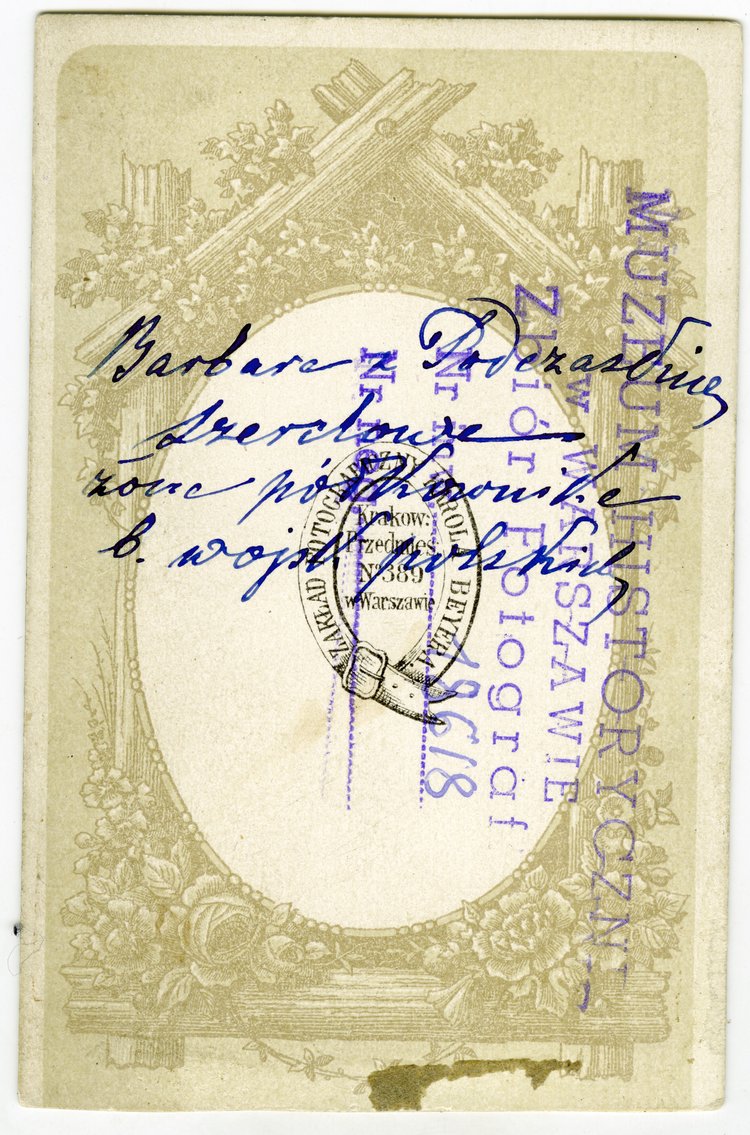 Barbara z Podczaskich
żona półkownika
b. wojsk polskich
ZAKŁAD FOTOGRAFICZNY KAROLA BEYERA.
Krakow:
Przedmieś:
No 389
w Warszawie
MUZEUM HISTORYCZNE
w WARSZAWIE
Zbiór Fotograf
Nr
Nr neg.